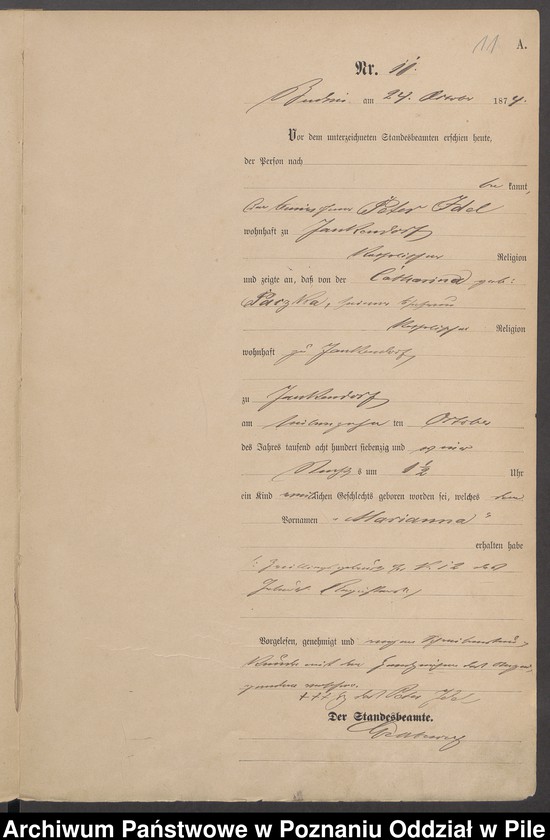 11 A.
Nr. 11.
am 24. October 1874.
Vor dem unterzeichneten Standesbeamten erschien heute,
der Person nach
be kannt,
der Peter Idel
wohnhaft zu Jankendorf
katholischer Religion
und zeigte an, daß von der Catharina geb:
Paczka, seiner Ehefrau
katholischer Religion
wohnhaft zu Jankendorf
zu Jankendorf
am ten October
des Jahres tausend acht hundert siebenzig und vier
Nachts um 1½ Uhr
ein Kind weiblichen Geschlechts geboren worden sei, welches den
Vornamen „Marianna“
erhalten habe
Zwillingsgeburt No 12 des
Geburts Registers
Vorgelesen, genehmigt und wegen
mit
+++ des Peter Idel
Der Standesbeamte.
Archiwum Państwowe w Poznaniu Oddział w Pile